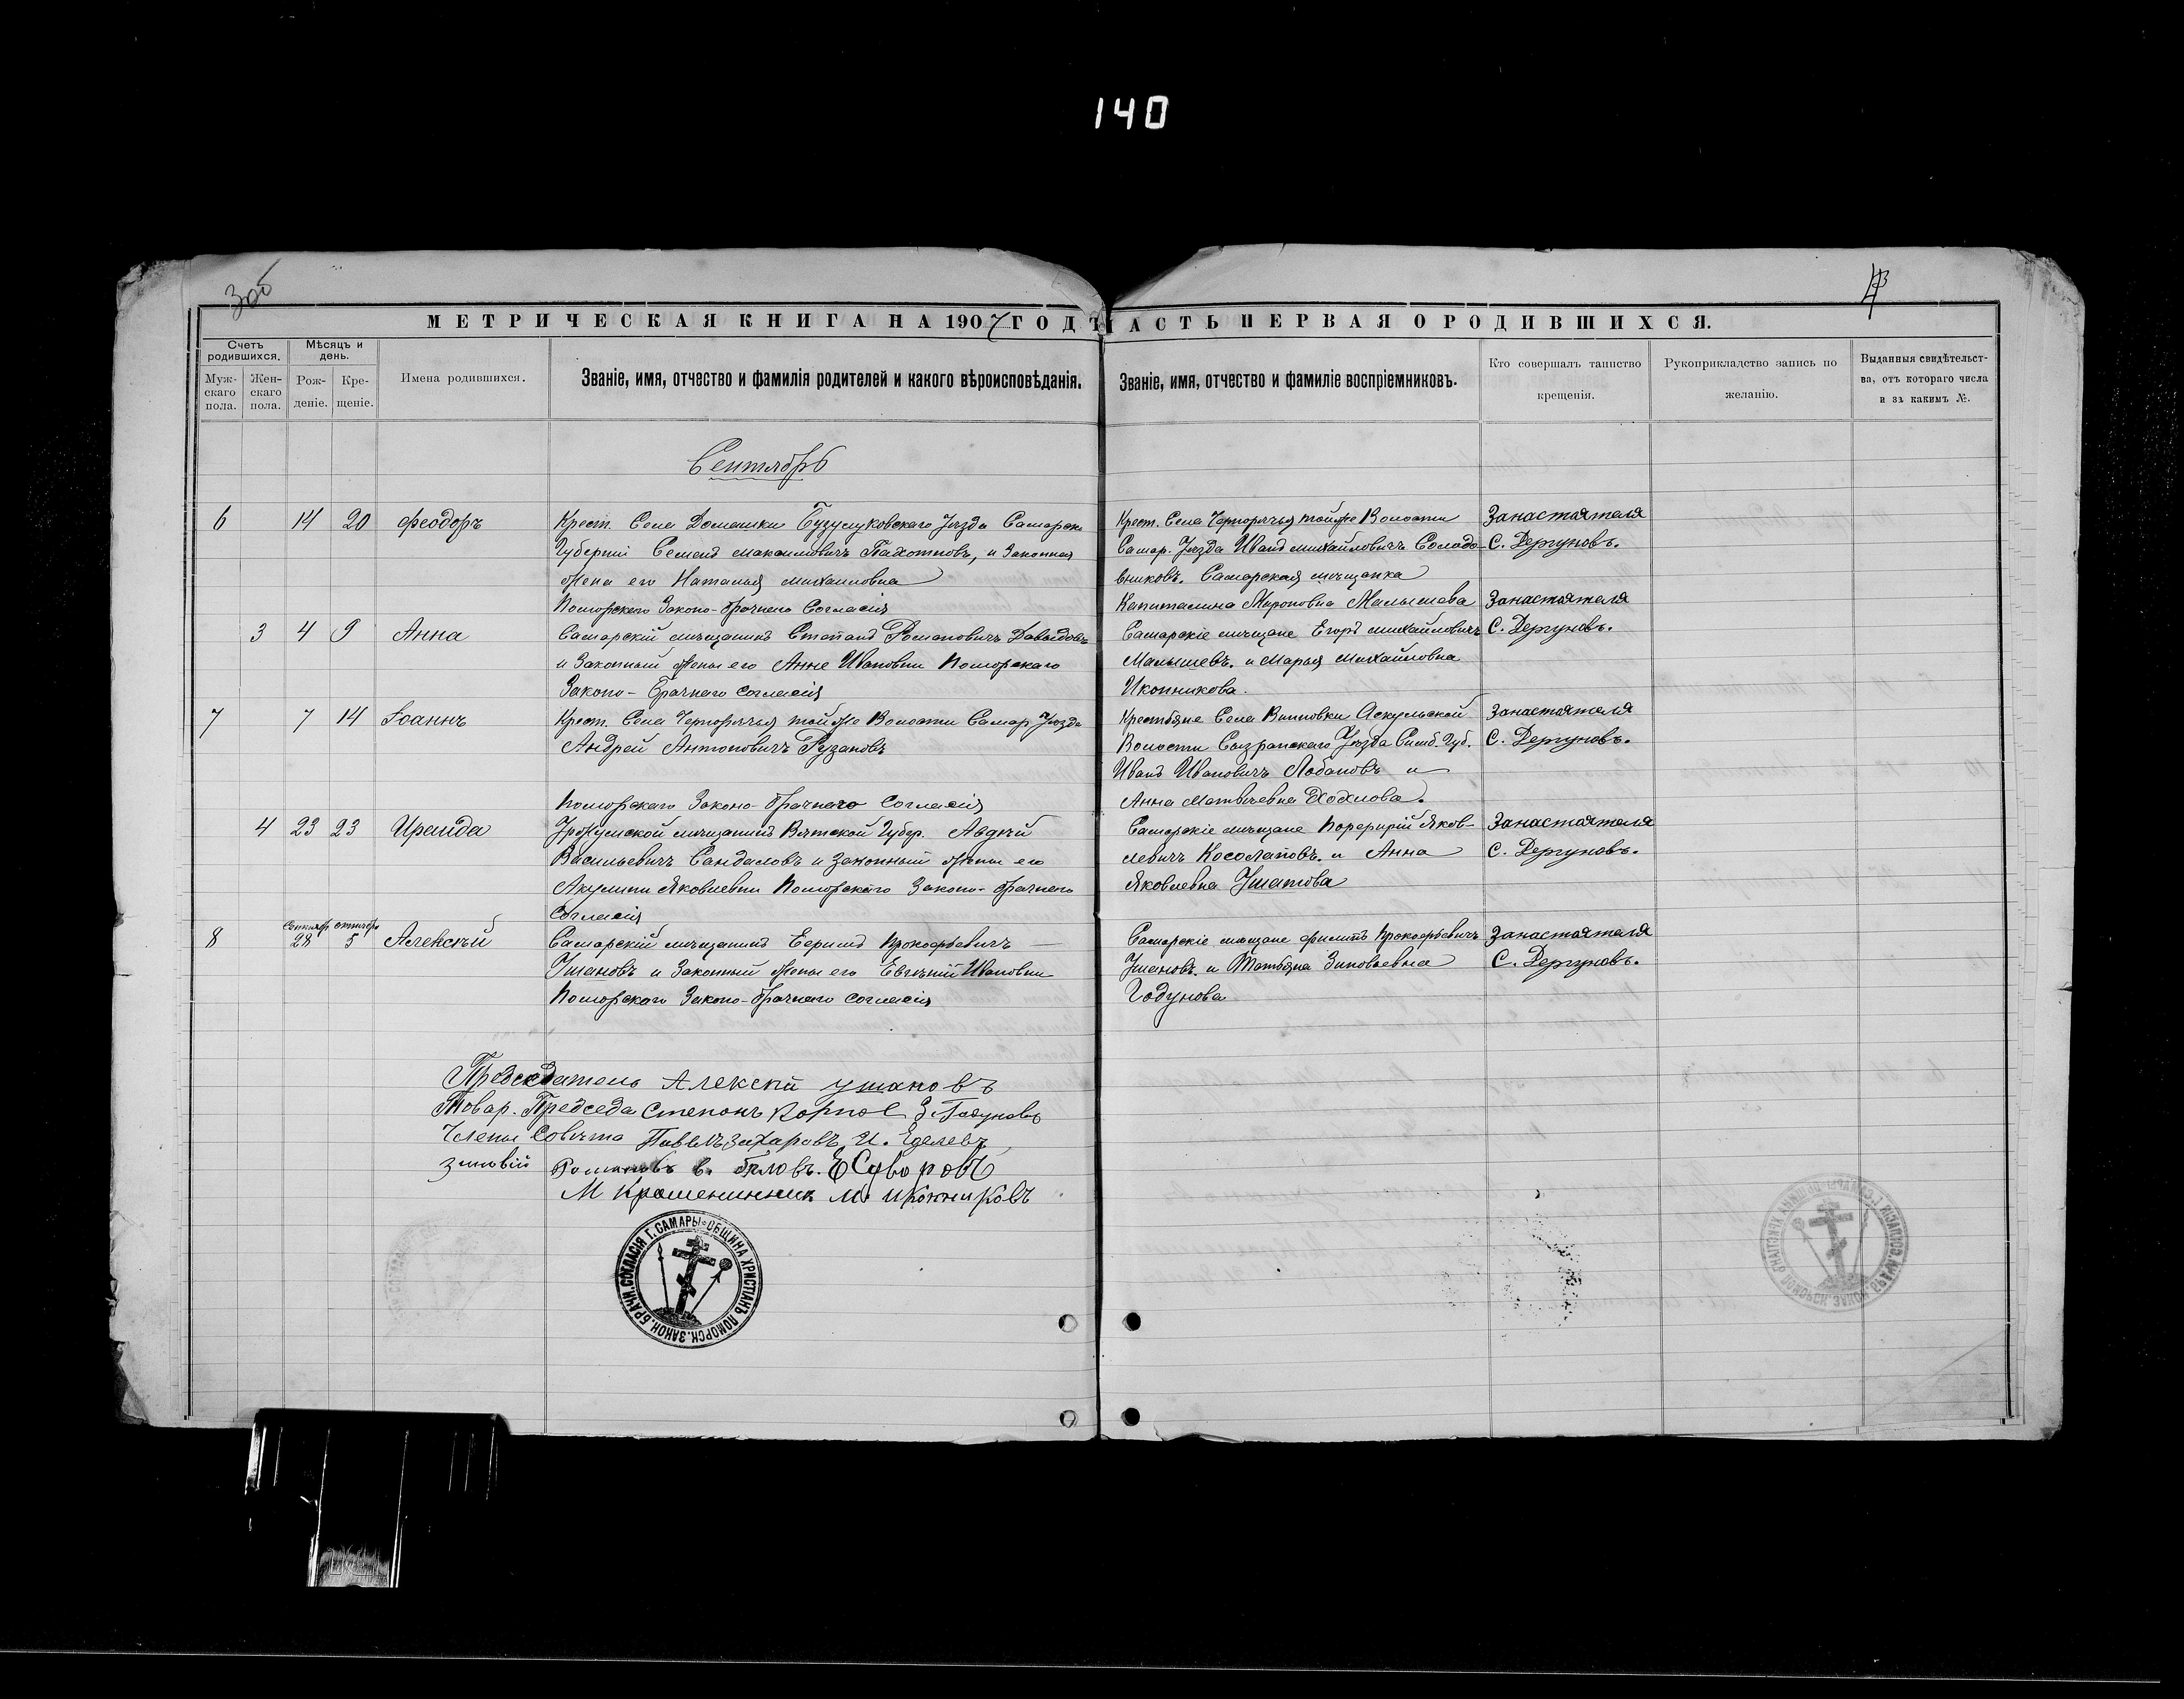 140
МЕТРИЧЕСКАЯ КНИГА НА 1907 ГОДЪ
ЧАСТЬ ПЕРВАЯ О РОДИВШИХСЯ.
Счетъ родившихся.
Мужскаго пола.
Женскаго пола.
Мѣсяцъ и день.
Рожденіе.
Крещеніе.
Имена родившихся.
Званіе, имя, отчество и фамилія родителей и какого вѣроисповѣданія.
Званіе, имя, отчество и фамиліе воспріемниковъ.
Кто совершалъ таинство крещенія.
Рукоприкладство запись по желанію.
Выданныя свидѣтельства, отъ котораго числа и за какимъ №.
Сентябрь
6 14 20 Феодоръ
Крест. Села Домашки Бузулуковскаго Уѣзда Самарск
Губерніи Семенъ Максимовичъ Пахотновъ, и Законная
жена его Наталья Михаиловна
Поморскаго Законо-брачнаго Согласія
Крест. Села Чернорѣчья тойже Волости
Самар. Уѣзда Иванъ Михайловичъ Солодо-
вниковъ. Самарская мѣщанка
Капиталина Мироновна Малышева
Занастоятеля
С. Дергуновъ.
3 4 9 Анна
Самарскій мѣщанинъ Степанъ Романовичъ Давыдовъ
и Законный жены его Анне Ивановни Поморскаго
Законо-Брачнаго согласія
Самарскіе мѣщане Егоръ Михайловичъ
Малышевъ. и Марья Михайловна
Иконникова.
Занастоятеля
С. Дергуновъ.
7 7 14 Іоаннъ
Крест. Села Чернорѣчья тойже Волости Самар. Уѣзда
Андрей Антоновичъ Рузановъ
Поморскаго Законо-брачнаго Согласія
Крестьяне Села Винновки Аскульской
Волости Сызранскаго Уѣзда Симб. Губ.
Иванъ Ивановичъ Лобановъ и
Анна Матвѣевна Хохлова.
Занастоятеля
С. Дергуновъ.
4 23 23 Ираида
Уржумской мѣщанинъ Вятской Губер. Авдѣй
Васильевичъ Сандаловъ и законный жены его
Акулини Яковлевни Поморскаго Законо-брачнаго
Согласія
Самарскіе мѣщане Порфирій Яков-
левичъ Косолаповъ. и Анна
Яковлевна Ушанова
Занастоятеля
С. Дергуновъ.
8 28 5 Алексѣй
Самарскій мѣщанинъ Ефримъ Прокофьевичъ
Ушановъ и Законный жены его Евгѣній Ивановни
Поморскаго Законо-брачнаго согласія
Самарскіе мѣщане Филипъ Прокофьевичъ
Ушановъ. и Татьяна Зиновьевна
Годунова
Занастоятеля
С. Дергуновъ.
Председатель Алексѣй Ушановъ
Товар. Председа Степанъ З. Годуновъ
Члены Совѣта Павелъ Захаровъ И.
Зиновій Романовъ в. бѣловъ. Е Суворовъ
М Крашенинник М. Иконниковъ
ОБЩИНА ХРИСТІАНЪ ПОМОРСК. ЗАКОН. БРАЧН. СОГЛАСІЯ Г. САМАРЫ